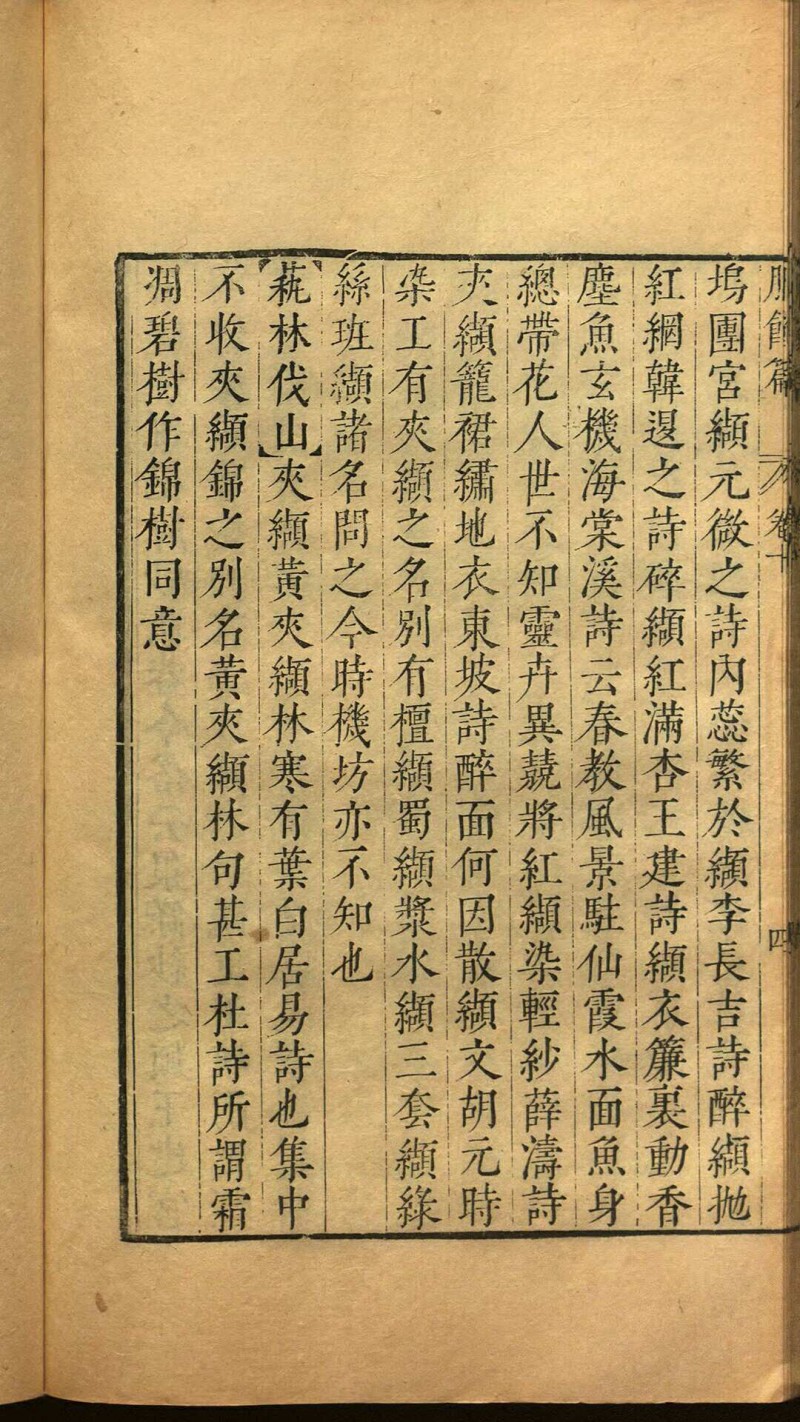 服飾篇 卷十 四
塢團宮纈元微之詩內蕊繁於纈李長吉詩醉纈拋
紅網韓退之詩碎纈紅滿杏王建詩纈衣簾裏動香
塵魚玄機海棠溪詩云春教風景駐仙霞水面魚身
總帶花人世不知靈卉異競將紅纈染輕紗薛濤詩
夾纈籠裙繡地衣東坡詩醉面何因散纈文胡元時
染工有夾纈之名別有檀纈蜀纈漿水纈三套纈綠
絲班纈諸名問之今時機坊亦不知也
蓺林伐山夾纈黃夾纈林寒有葉白居易詩也集中
不收夾纈錦之別名黃夾纈林句甚工杜詩所謂霜
凋碧樹作錦樹同意